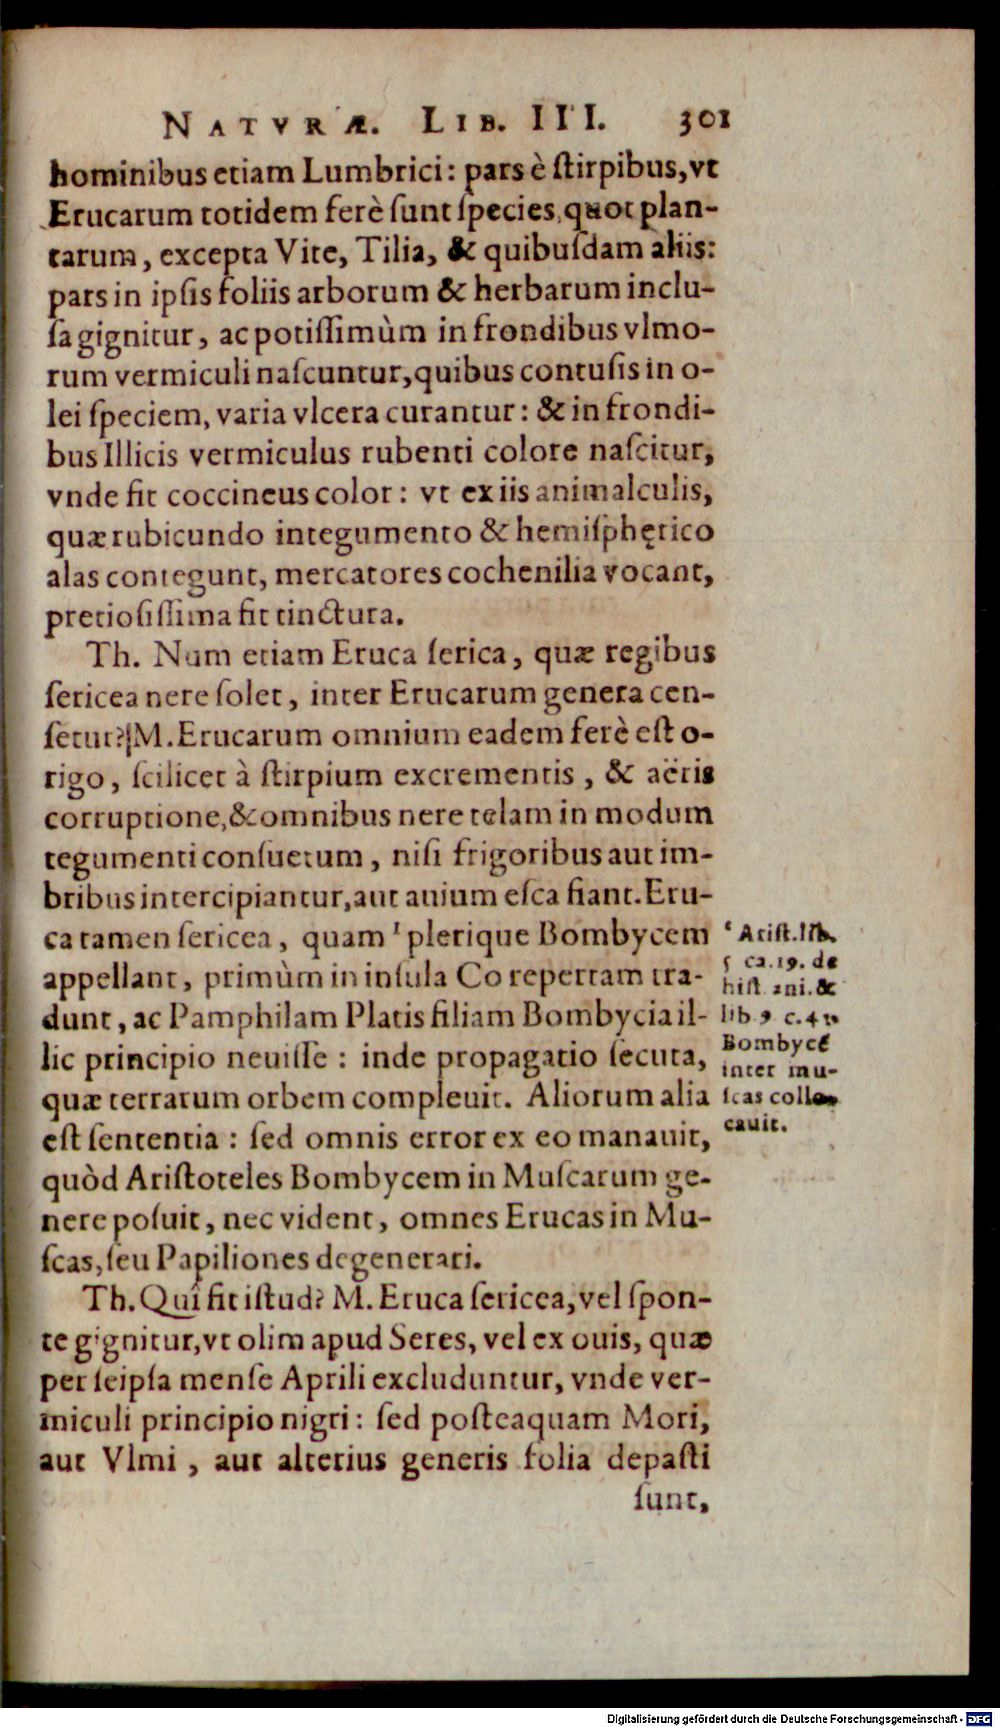 NATVRÆ. LIB. III. 301
hominibus etiam Lumbrici: pars è ſtirpibus, vt
Erucarum totidem ferè ſunt ſpecies, quot plan-
tarum, excepta Vite, Tilia, & quibuſdam aliis:
pars in ipſis foliis arborum & herbarum inclu-
ſa gignitur, ac potiſſimùm in frondibus vlmo-
rum vermiculi naſcuntur, quibus contuſis in o-
lei ſpeciem, varia vlcera curantur: & in frondi-
bus Illicis vermiculus rubenti colore naſcitur,
vnde fit coccineus color: vt ex iis animalculis,
quæ rubicundo integumento & hemiſphęrico
alas contegunt, mercatores cochenilia vocant,
pretioſiſſima fit tinctura.
Th. Num etiam Eruca ſerica, quæ regibus
ſericea nere ſolet, inter Erucarum genera cen-
ſetur? M. Erucarum omnium eadem ferè eſt o-
rigo, ſcilicet à ſtirpium excrementis, & aëris
corruptione, & omnibus nere telam in modum
tegumenti conſuetum, niſi frigoribus aut im-
bribus intercipiantur, aut auium eſca fiant. Eru-
ca tamen ſericea, quam ¹ plerique Bombycem
appellant, primùm in inſula Co repertam tra-
dunt, ac Pamphilam Platis filiam Bombycia il-
lic principio neuiſſe: inde propagatio ſecuta,
quæ terrarum orbem compleuit. Aliorum alia
eſt ſententia: ſed omnis error ex eo manauit,
quòd Ariſtoteles Bombycem in Muſcarum ge-
nere poſuit, nec vident, omnes Erucas in Mu-
ſcas, ſeu Papiliones degenerari.
Th. Quî fit iſtud? M. Eruca ſericea, vel ſpon-
te gignitur, vt olim apud Seres, vel ex ouis, quæ
per ſeipſa menſe Aprili excluduntur, vnde ver-
miculi principio nigri: ſed poſteaquam Mori,
aut Vlmi, aut alterius generis folia depaſti
ſunt,
¹ Ariſt. lib.
5 ca. 19. de
hiſt. ani. &
lib 9 c. 4
Bombycē
inter mu-
ſcas collo-
cauit.
Digitalisierung gefördert durch die Deutsche Forschungsgemeinschaft - DFG